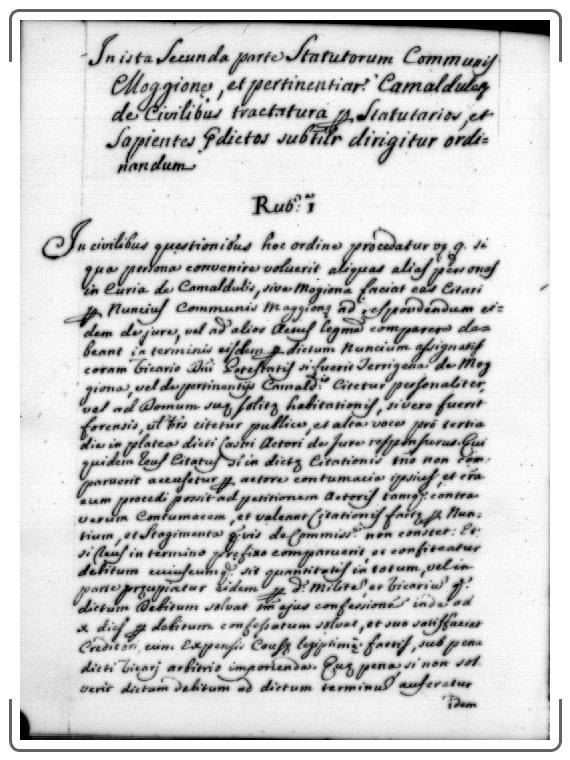 In ista Secunda parte Statutorum Communis
Moggionę, et pertinentiar: Camaldulen
de Civilibus tractatura Statutarios, et
Sapientes pdictos subtilr dirigitur ordi-
nandum
Rub.ca 1
In civilibus questionibus hoc ordine procedatur vz q. si
qua persona convenire voluerit aliquas alias personas
in Curia de Camaldulis, sive Mogiona faciat eas Citari
p Nuncius Communis Maggionę ad respondendum ei-
dem de jure, vel ad alios Actus legmos comparere de-
beant in terminis eisdem p dictum Nuncium assignatis
coram Vicario Dni Potestatis si fuerit Terrigena de Mog
giona, vel de pertinentijs Camald: Citetur personaliter,
vel ad Domum suę solitę habitationis, si vero fuerit
forensis, citetur publice, et alta voce pro tertia
die in platea dicti Castri Actori de Jure responsurus. Qui
quidem Reus Citatus si in dictę Citationis tno non com
paruerit accusetur p actore contumacia ipsius, et
eum procedi possit ad petitionem Actoris tamq: contra
verum Contumacem, et valeant Citationis factę p Nun-
tium, et Stagimenta quis de Commiss: non constet: Et
si Reus in termino pręfixo comparuerit et confiteatur
debitum cuiuscumq: sit quantitatis in totum, vel in
parte pręcipiatur eidem p d: Milite et Vicario q:
dictum Debitum solvat ejus confessione inde ad
x dies p debitum confessatum solvat, et suo satisfaciat
Creditori, cum Expensis Causę legiptimę factis, sub pena
dicti Vicarij arbitrio imponenda. Quę pena si non sol
verit dictum debitum ad dictum terminus auferatur
idem